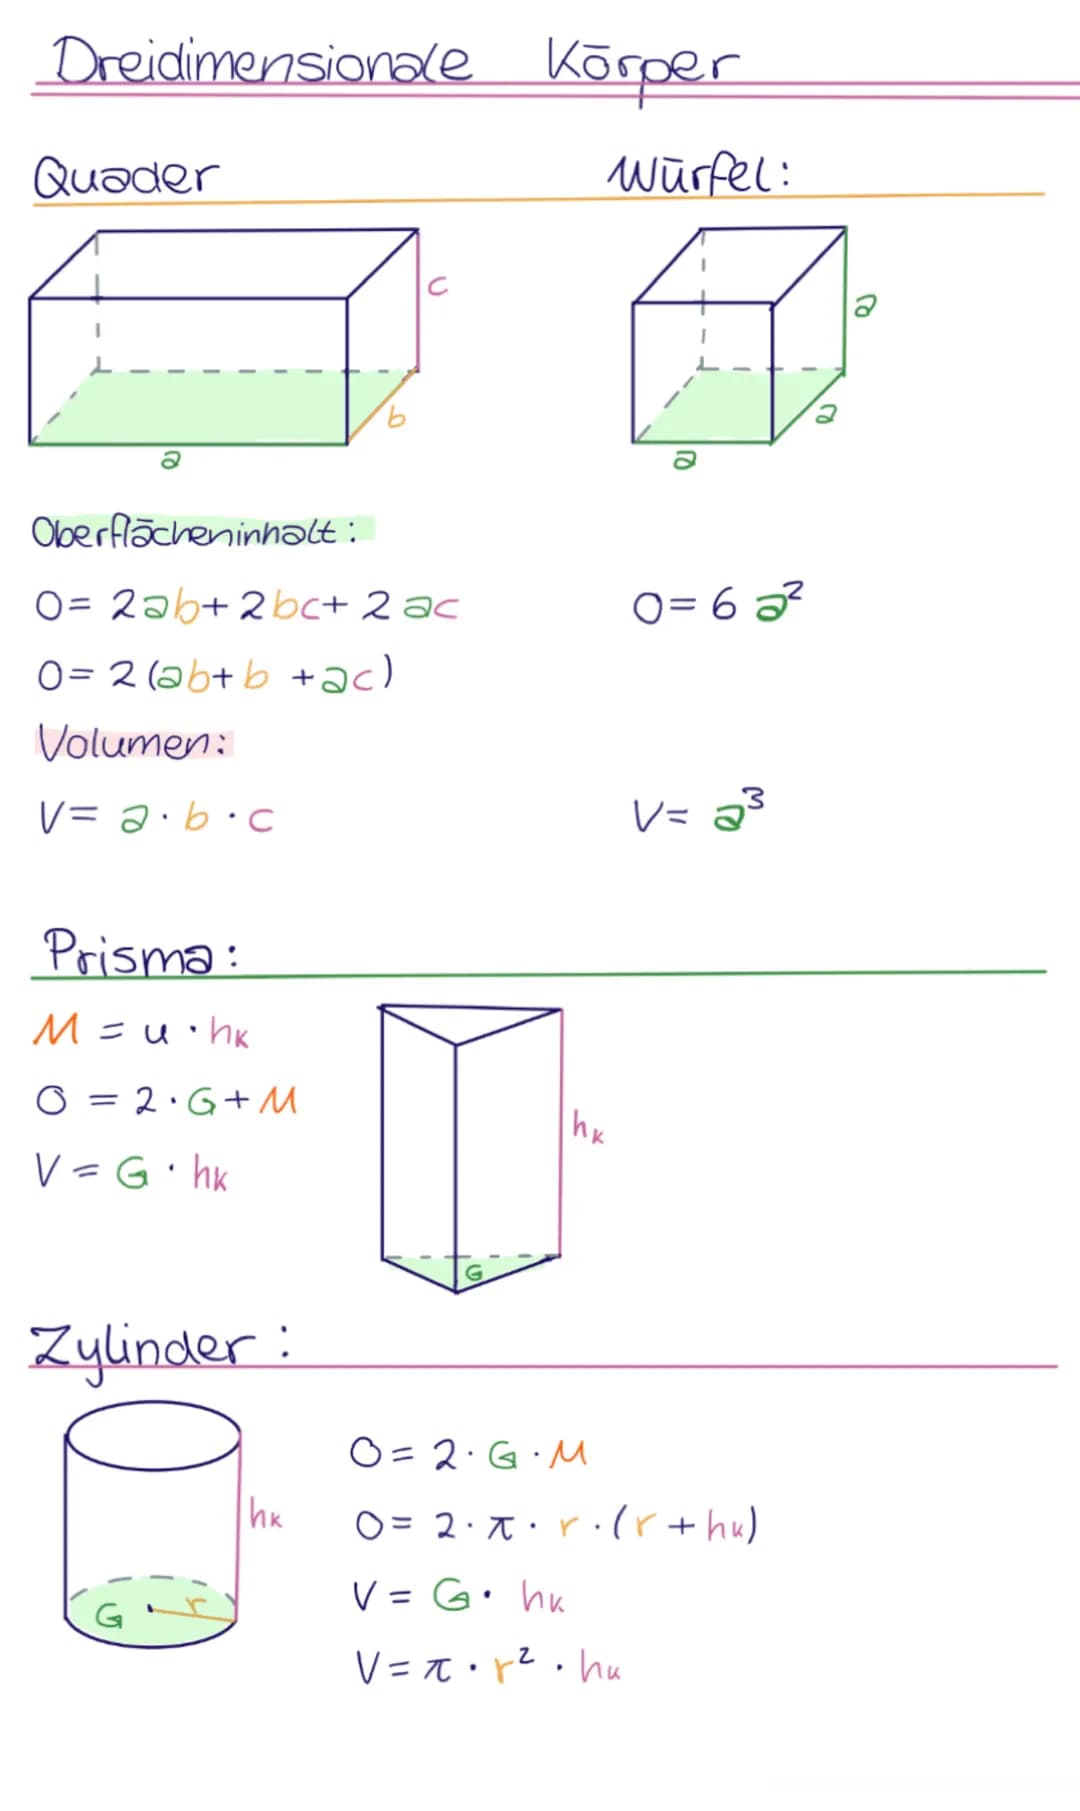 Dreidimensionale Körper
Quader
Würfel:
c
b
a
a
a
a
Oberflächeninhalt:
O = 2ab + 2bc + 2ac
O = 6 a²
O = 2 (ab + b + ac)
Volumen:
V = a · b · c
V = a³
Prisma:
M = u · hk
O = 2 · G + M
V = G · hk
hk
G
Zylinder:
hk
G r
O = 2 · G · M
O = 2 · π · r · (r + hk)
V = G · hk
V = π · r² · hk